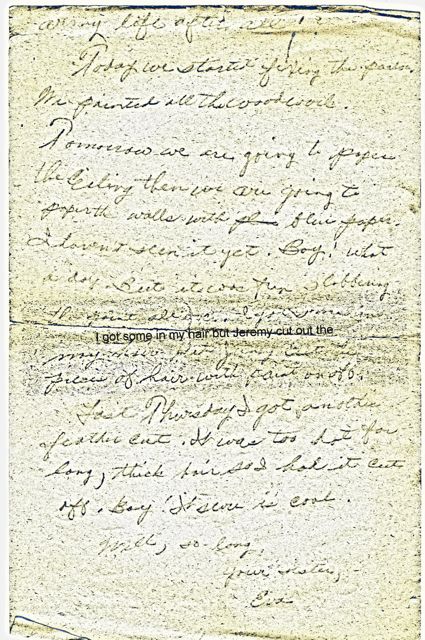 life after all!
Today we started fixing the parlor.
We painted all the woodwork.
Tomorrow we are going to paper
the ceiling then we are going to
paper the walls with blue paper.
I haven't seen it yet. Boy! what
a day. But it was fun slobbering
the paint all
I got some in my hair but Jeremy cut out the
my hair
piece of hair with paint on
Last Thursday I got another
feather cut. It was too hot for
long, thick hair so I had it cut
off. Boy! It sure is cool.
Well, so long,
Your sister,
Eva